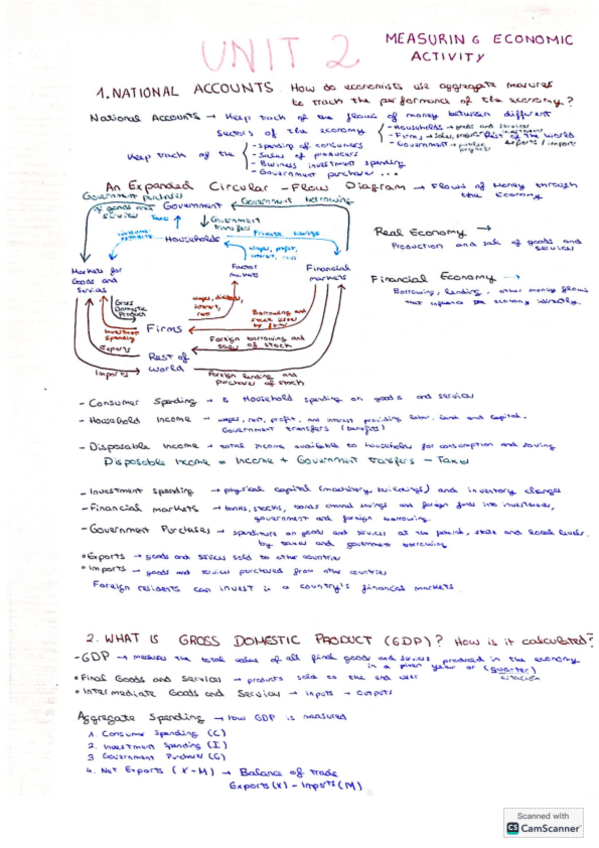 UNIT 2
MEASURING ECONOMIC
ACTIVITY
1. NATIONAL ACCOUNTS. How do economists use aggregate measures
to track the performance of the economy?
National Accounts → Keep track of the flows of money between different
sectors of the economy
- Households → goods and services
- Firms → sales,
Rest of the world
- Government →
exports / imports
Keep track of the
- Spending of consumers
- Sales of producers
- Business investment spending
- Government purchases ...
An Expanded Circular - Flow Diagram → Flows of Money through
the Economy
Government purchases
of goods and
services
Government
Government borrowing
Taxes
Government
transfers
Consumer
spending
Households
Private savings
wages, profit,
interest, rent
Markets for
Goods and
Services
Factor
markets
Financial
markets
Gross
Domestic
Product
wages,
interest,
rent
Borrowing and
stock issues
by firms
Firms
Investment
Spending
Exports
Foreign borrowing and
sales of stock
Rest of
World
Imports
Foreign lending and
purchases of stock
Real Economy →
Production and sale of goods and
services
Financial Economy →
Borrowing, lending, other money flows
that influence the economy indirectly.
- Consumer Spending → Household spending on goods and services
- Household Income → wages, rent, profit, and interest providing labor, land and capital.
Government transfers (benefits)
- Disposable Income → total income available to households for consumption and saving
Disposable Income = Income + Government transfers - Taxes
- Investment spending → physical capital (machinery, buildings) and inventory changes.
- Financial markets → banks, stocks, bonds channel savings and foreign funds into investments,
government and foreign borrowing.
- Government Purchases → spending on goods and services at the federal, state and local levels.
by taxes and government borrowing
• Exports → goods and services sold to other countries
• Imports → goods and services purchased from other countries
Foreign residents can invest in a country's financial markets.
2. WHAT IS GROSS DOMESTIC PRODUCT (GDP)? How is it calculated?
- GDP → measures the total value of all final goods and services produced in the economy
in a given year or (quarter)
• Final Goods and Services → products sold to the end user
• Intermediate Goods and Services → inputs → outputs
Aggregate Spending → how GDP is measured
1. Consumer Spending (C)
2. Investment Spending (I)
3 Government Purchases (G)
4. Net Exports (X-M) → Balance of trade
Exports (X) - Imports (M)
Scanned with
CS CamScanner